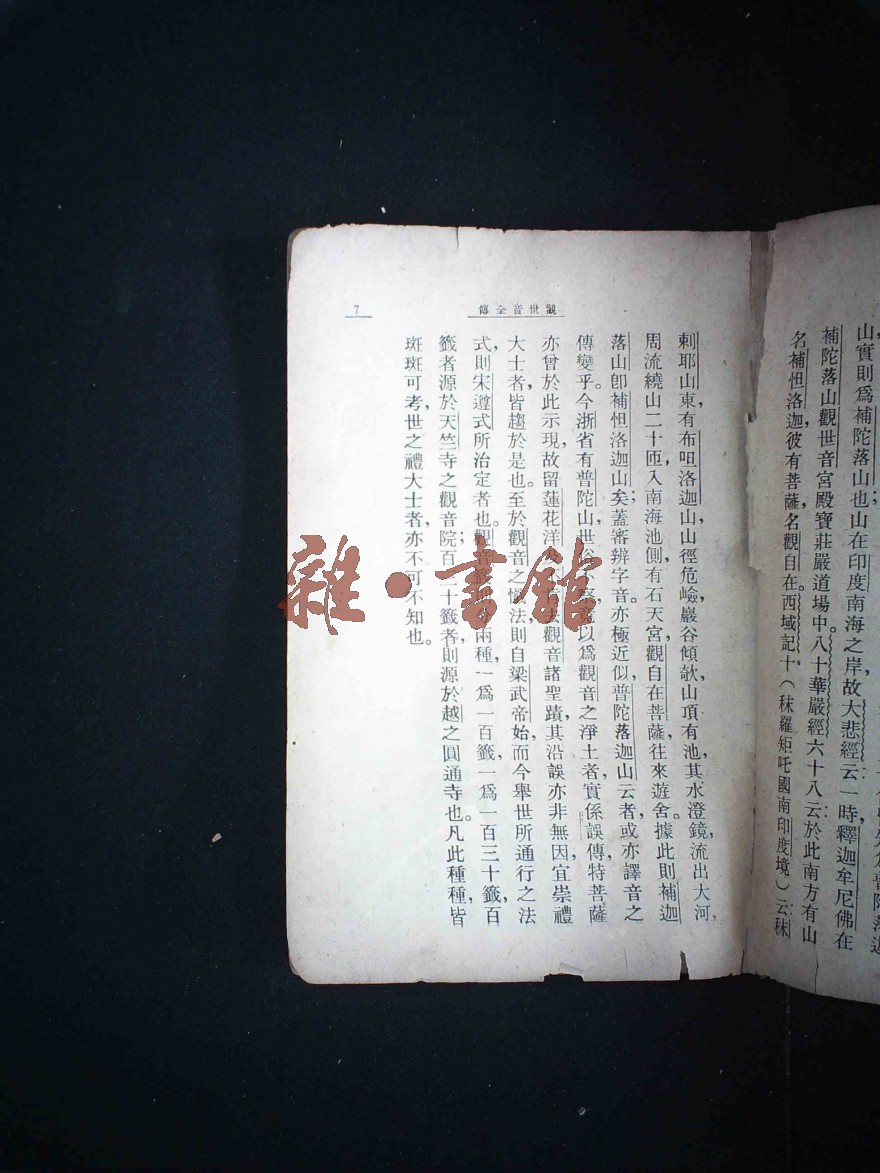 山實則爲補陀落山也山在印度南海之岸故大悲經云一時釋迦牟尼佛在
補陀落山觀世音宮殿寶莊嚴道場中。八十華嚴經六十八云於此南方有山
名補怛洛迦彼有菩薩名觀自在。西域記十(秣羅矩吒國南印度境)云秣
觀世音全傳
7
剌耶山東有布呾洛迦山山徑危嶮巖谷傾欹山頂有池其水澄鏡流出大河,
周流繞山二十匝入南海池側有石天宮觀自在菩薩往來遊舍。據此則補迦
落山卽補怛洛迦山矣;蓋審辨字音亦極近似普陀落迦山云者,或亦譯音之
傳變乎。今浙省有普陀山,世俗以爲觀音之淨土者,實係誤傳特菩薩
亦曾於此示現,故留蓮花洋觀音諸聖蹟,其沿誤亦非無因宜崇禮
大士者,皆趨於是也。至於觀音之懺法,則自梁武帝始,而今舉世所通行之法
式,則宋遵式所治定者也。觀音籤則分兩種,一爲一百籤,一爲一百三十籤,百
籤者源於天竺寺之觀音院;百三十籤者,則源於越之圓通寺也。凡此種種,皆
斑斑可考,世之禮大士者,亦不可不知也。
雜·書館